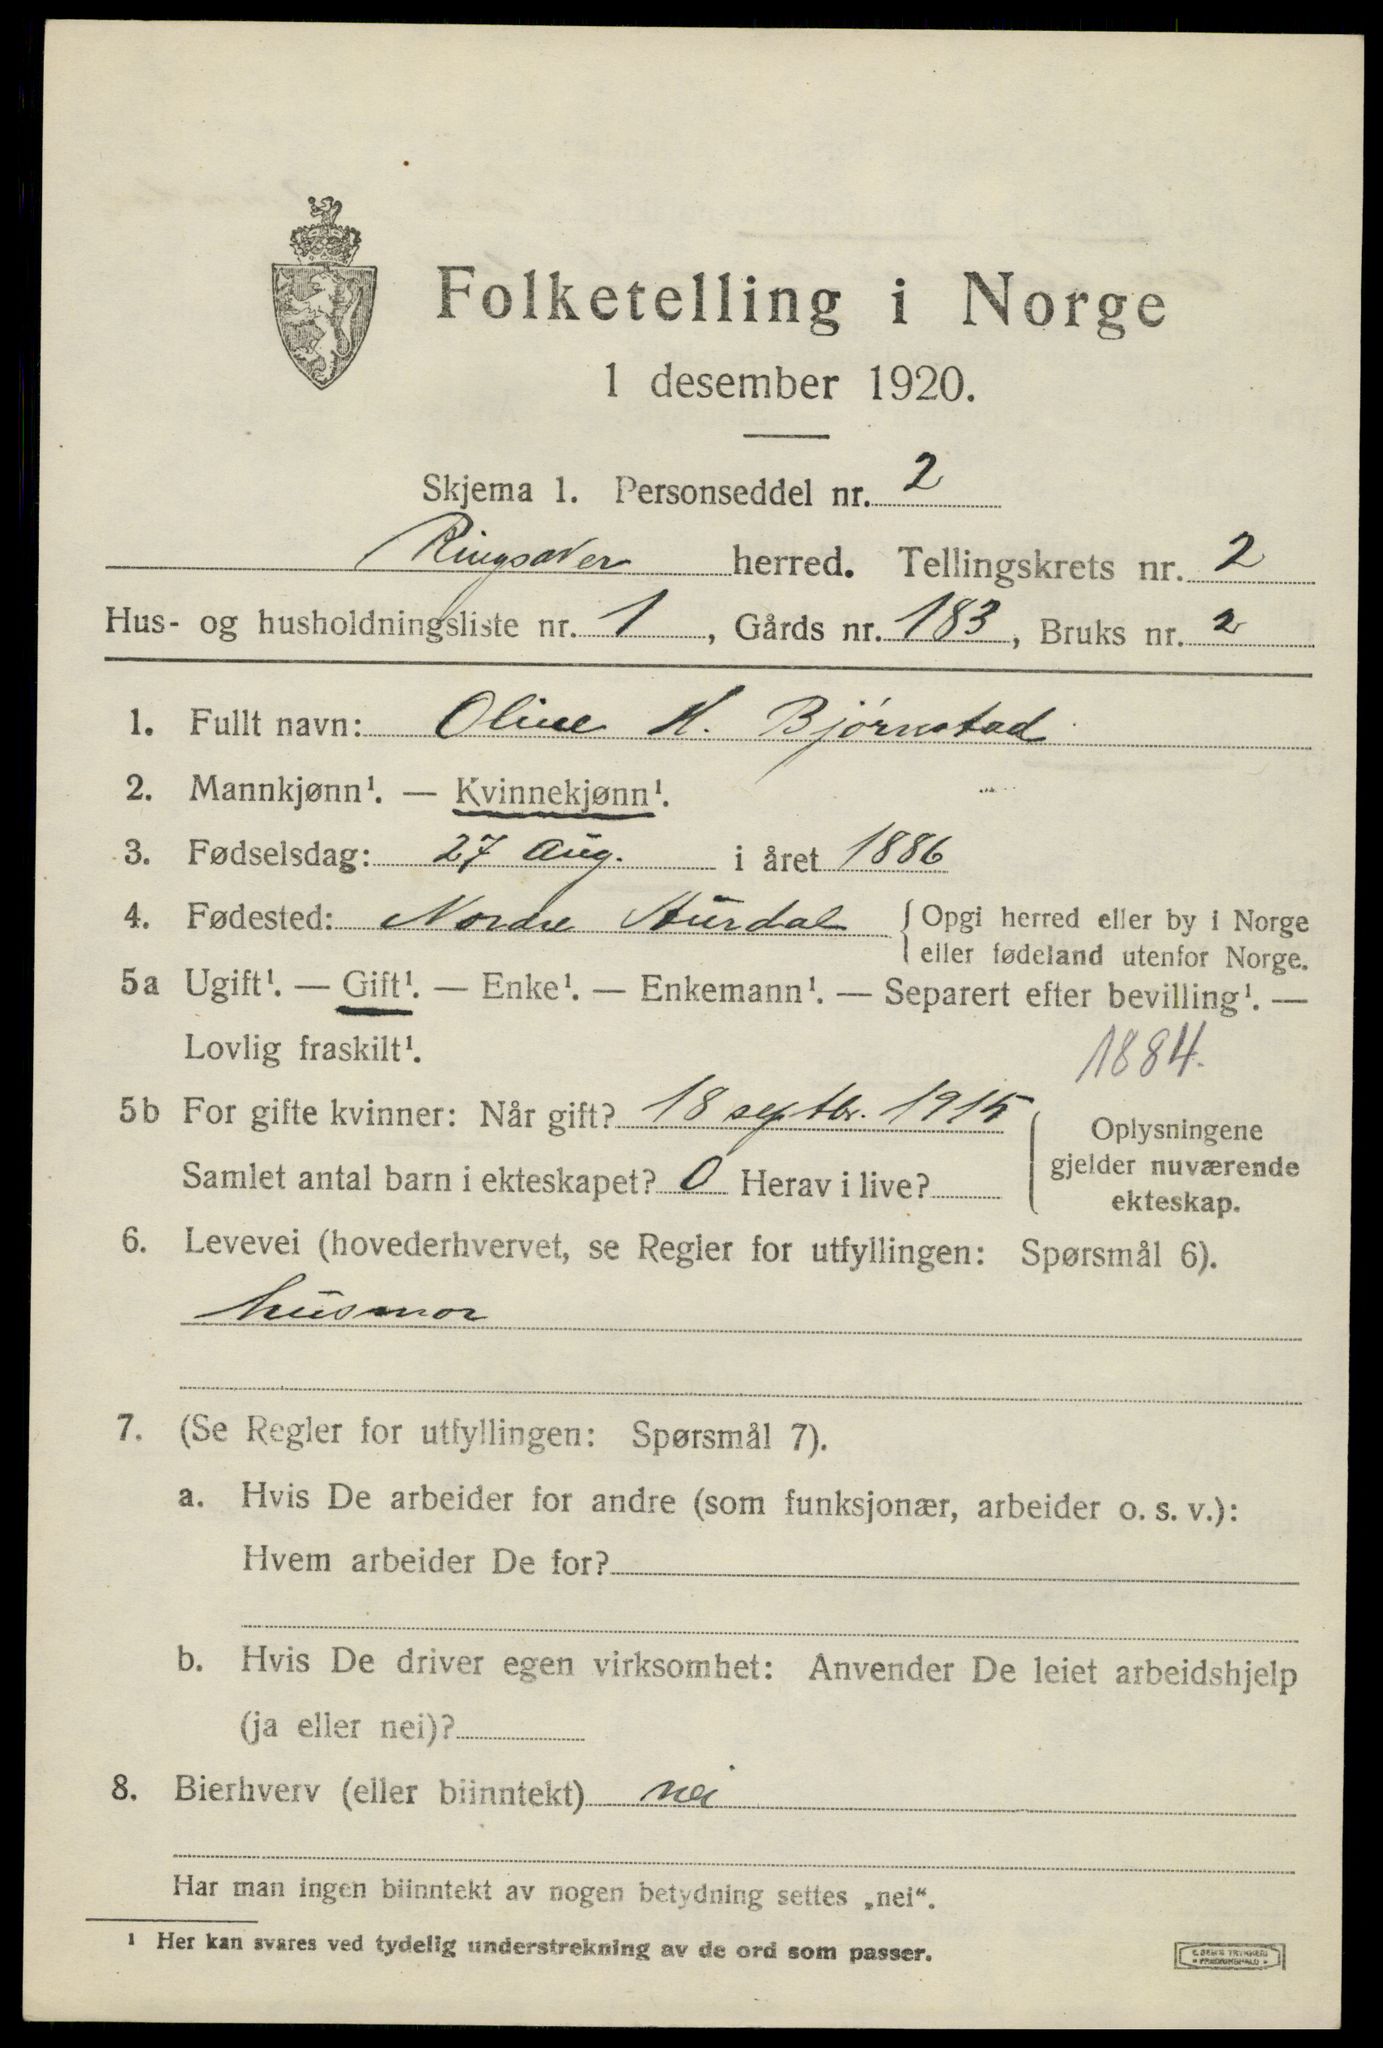 Folketelling i Norge
1 desember 1920.
Skjema 1. Personseddel nr. 2
Ringsaker herred. Tellingskrets nr. 2
Hus- og husholdningsliste nr. 1, Gårds nr. 183, Bruks nr. 2
1. Fullt navn: Oline H. Bjørnstad
2. Mannkjønn¹. — Kvinnekjønn¹.
3. Fødselsdag: 27 Aug. i året 1886
4. Fødested: Nordre Aurdal { Opgi herred eller by i Norge
eller fødeland utenfor Norge.
5a Ugift¹. — Gift¹. — Enke¹. — Enkemann¹. — Separert efter bevilling¹. —
Lovlig fraskilt¹.
1884.
5b For gifte kvinner: Når gift? 18 septbr. 1915
Samlet antal barn i ekteskapet? 0 Herav i live?
Oplysningene
gjelder nuværende
ekteskap.
6. Levevei (hovederhvervet, se Regler for utfyllingen: Spørsmål 6).
husmor
7. (Se Regler for utfyllingen: Spørsmål 7).
a. Hvis De arbeider for andre (som funksjonær, arbeider o. s. v.):
Hvem arbeider De for?
b. Hvis De driver egen virksomhet: Anvender De leiet arbeidshjelp
(ja eller nei)?
8. Bierhverv (eller biinntekt) nei
Har man ingen biinntekt av nogen betydning settes „nei“.
¹ Her kan svares ved tydelig understrekning av de ord som passer.